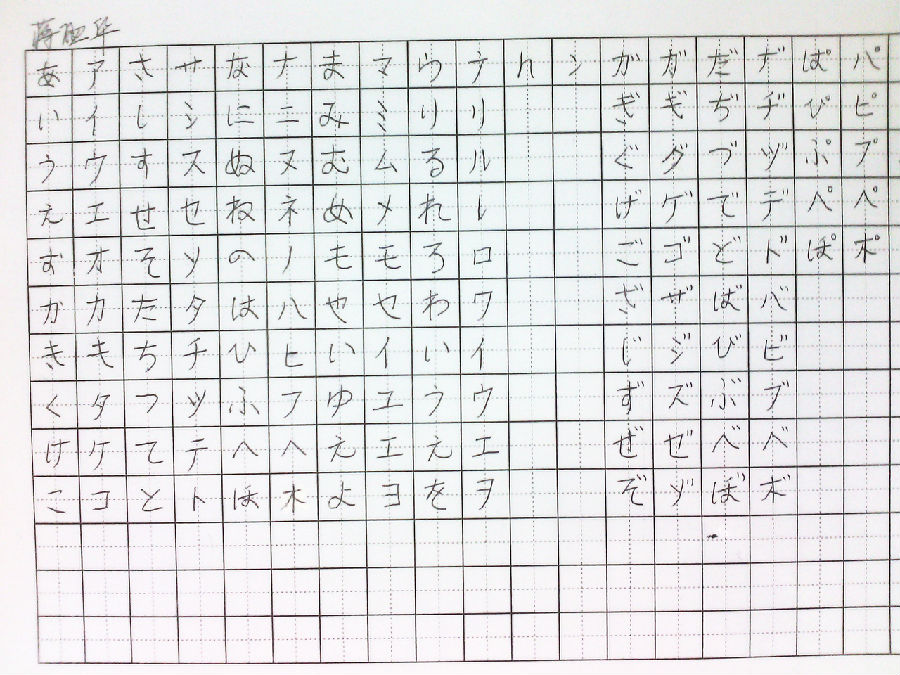 あ ア さ サ な ナ ま マ ウ ナ ん ン が ガ だ ダ ぱ パ
い イ し シ に ニ み ミ り リ ぎ ギ ぢ ヂ ぴ ピ
う ウ す ス ぬ ヌ む ム る ル ぐ グ づ ヅ ぷ プ
え エ せ セ ね ネ め メ れ レ げ ゲ で デ ペ ペ
お オ そ ソ の ノ も モ ろ ロ ご ゴ ど ド ぽ ポ
か カ た タ は ハ や ヤ わ ワ ざ ザ ば バ
き キ ち チ ひ ヒ い イ い イ じ ジ び ビ
く ク つ ツ ふ フ ゆ ユ う ウ ず ズ ぶ ブ
け ケ て テ へ ヘ え エ え エ ぜ ゼ べ ベ
こ コ と ト ほ ホ よ ヨ を ヲ ぞ ゾ ぼ ボ